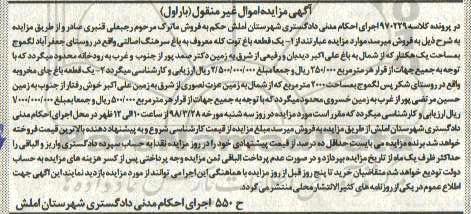 آگهی مزایده اموال غیر منقول (بار اول)
در پرونده کلاسه ۹۷۰۲۲۹ اجرای احکام مدنی دادگستری شهرستان املش حکم به فروش ماترک مرحوم رجبعلی قنبری صادر و از طریق مزایده
به شرح ذیل به فروش میرسد موارد مزایده عبارتند از ۱- یک قطعه باغ توت کله معروف به باغ سرهنگ اصالتی واقع در روستای جعفرآباد لگموج
بمساحت یک هکتار که از شمال به باغ علی اکبر دیدبان و رفیعی از شرق به زمین دکتر صمد پور از جنوب و غرب به رودخانه محدود میگردد که با
توجه به جمیع جهات از قرار هر مترمربع ۲۵۰/۰۰۰ ریال و جمعا مبلغ ۲/۵۰۰/۰۰۰/۰۰۰ ریال ارزیابی و کارشناسی میگردد ۲- یک قطعه باغ چای مخروبه
واقع در روستای شکر پس لگموج بمساحت ۲۰۰۰ مترمربع که از شمال به زمین عزت نصوری از شرق به زمین علی اکبر خوش رفتار از جنوب به زمین
حسین مرتضی پور از غرب به زمین خسروی محدود میگردد که با توجه به جمیع جهات از قرار هر مترمربع ۵۰۰/۰۰۰ ریال و جمعا به مبلغ ۱/۰۰۰/۰۰۰/۰۰۰
ریال ارزیابی و کارشناسی میگردد که مقرر است مورد مزایده در روز سه شنبه مورخه ۹۸/۳/۲۸ از ساعت ۱۰ الی ۱۲ ظهر در محل اجرای احکام مدنی
دادگستری شهرستان املش از طریق مزایده به فروش میرسد مبلغ مزایده از قیمت کارشناسی شروع و به پیشنهاد دهنده بالاترین قیمت فروخته
خواهد شد برنده مزایده می بایست حداقل ده درصد از قیمت پیشنهادی خود را در روز مزایده نقدا به حساب سپرده دادگستری واریز و الباقی را
حداکثر ظرف یک ماه از تاریخ مزایده بپردازد و در صورت عدم پرداخت الباقی ثمن مزایده وجه پرداختی پس از کسر هزینه های مزایده به حساب
دولت تودیع خواهد شد متقاضیان خرید تا پنج روز قبل از روز مزایده با هماهنگی این اجرا می توانند از مورد مزایده بازدید نمایند این آگهی جهت
اطلاع عموم در یکی از روزنامه های کثیرالانتشار محلی منتشر می گردد.
ح ۵۵۰ اجرای احکام مدنی دادگستری شهرستان املش